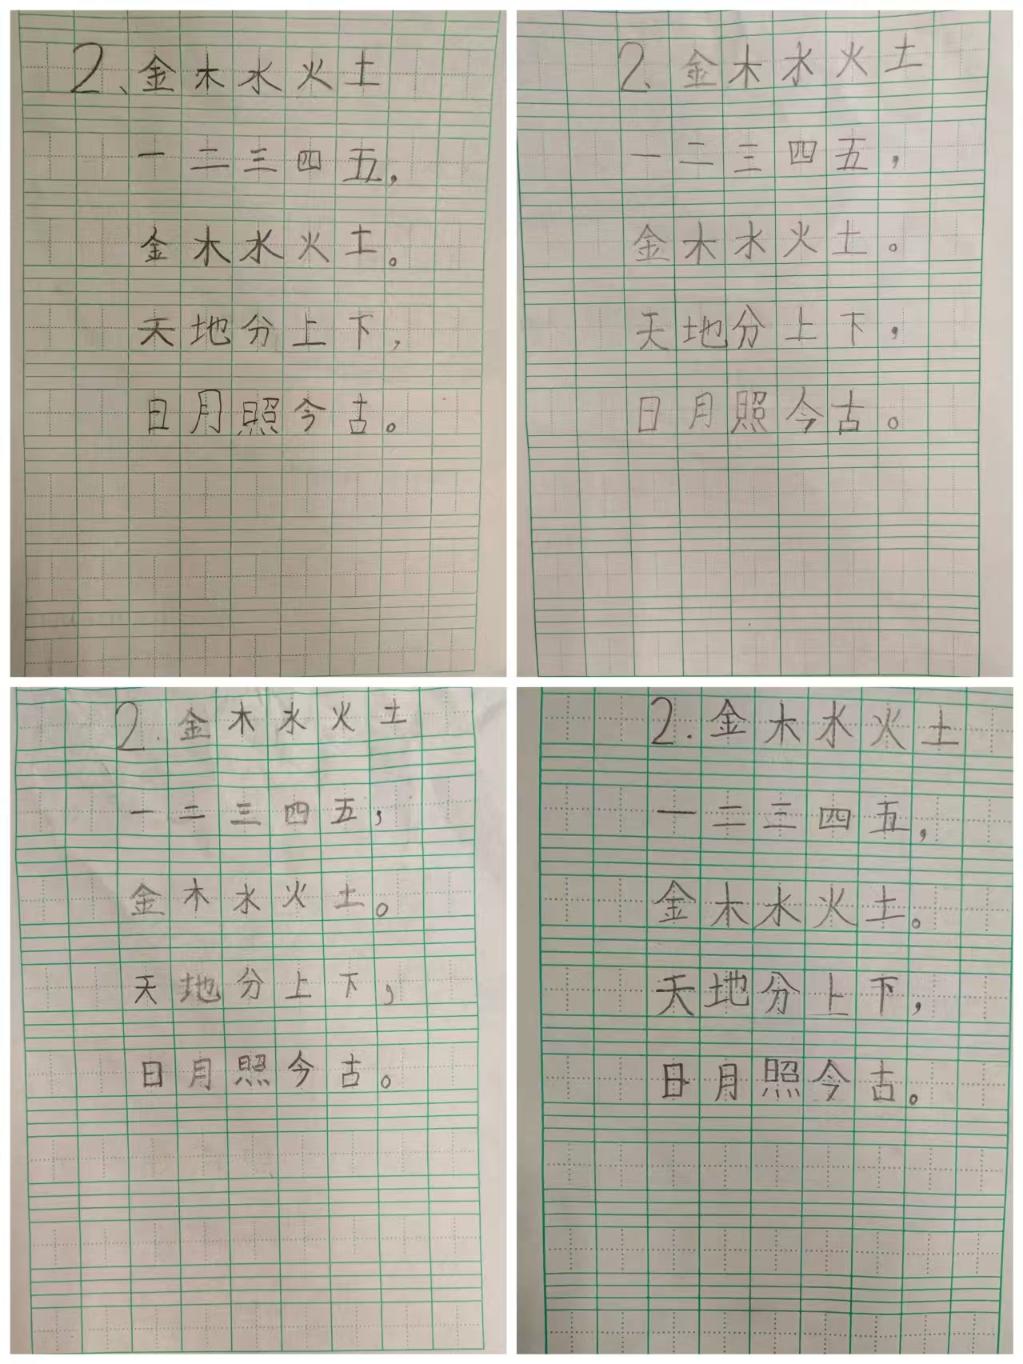 2、金木水火土
一二三四五，
金木水火土。
天地分上下，
日月照今古。
2、金木水火土
一二三四五，
金木水火土。
天地分上下，
日月照今古。
2.金木水火土
一二三四五，
金木水火土。
天地分上下，
日月照今古。
2.金木水火土
一二三四五，
金木水火土。
天地分上下，
日月照今古。